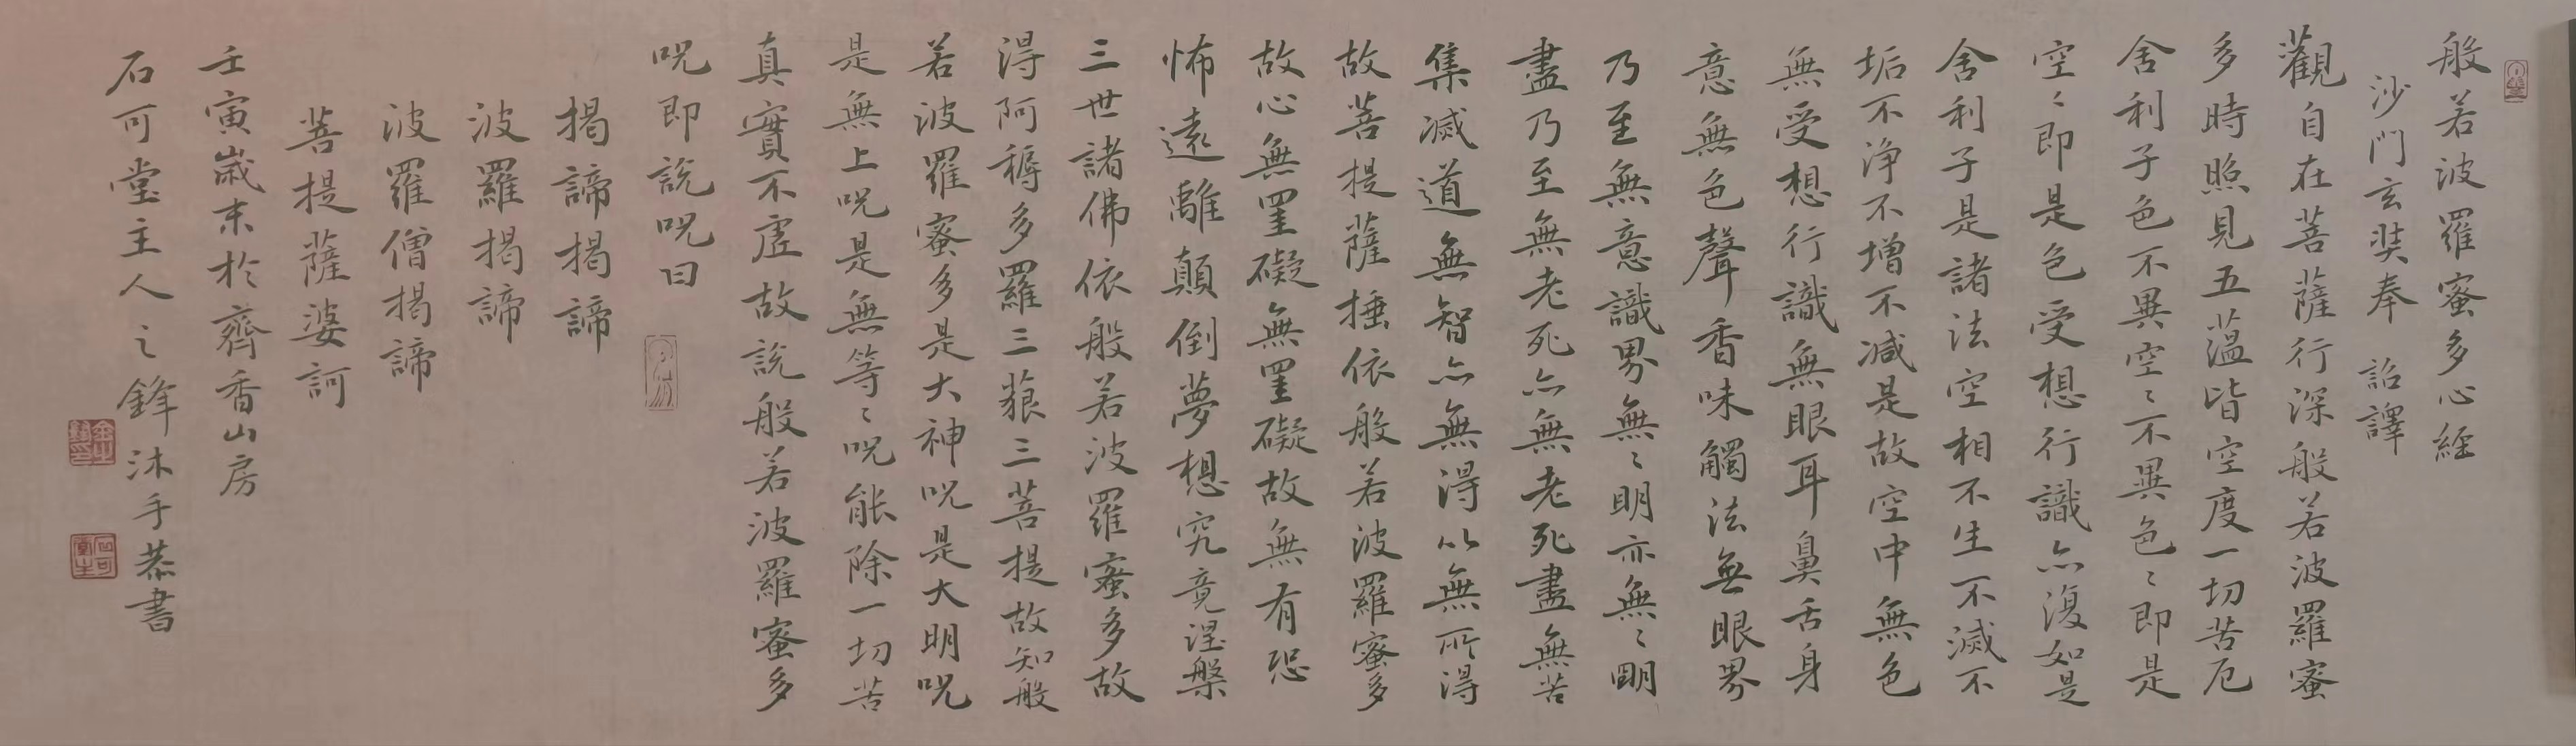 般若波羅蜜多心經
沙門玄奘奉 詔譯
觀自在菩薩行深般若波羅蜜
多時照見五蕰皆空度一切苦厄
舍利子色不異空〻不異色〻即是
空〻即是色受想行識亦復如是
舍利子是諸法空相不生不滅不
垢不淨不增不減是故空中無色
無受想行識無眼耳鼻舌身
意無色聲香味觸法無眼界
乃至無意識界無〻明亦無〻明
盡乃至無老死亦無老死盡無苦
集滅道無智亦無得以無所得
故菩提薩埵依般若波羅蜜多
故心無罣礙無罣礙故無有恐
怖遠離顛倒夢想究竟涅槃
三世諸佛依般若波羅蜜多故
得阿耨多羅三藐三菩提故知般
若波羅蜜多是大神呪是大明呪
是無上呪是無等〻呪能除一切苦
真實不虛故說般若波羅蜜多
呪即說呪曰
揭諦揭諦
波羅揭諦
波羅僧揭諦
菩提薩婆訶
壬寅歲末於齊香山房
石可堂主人之鋒沐手恭書